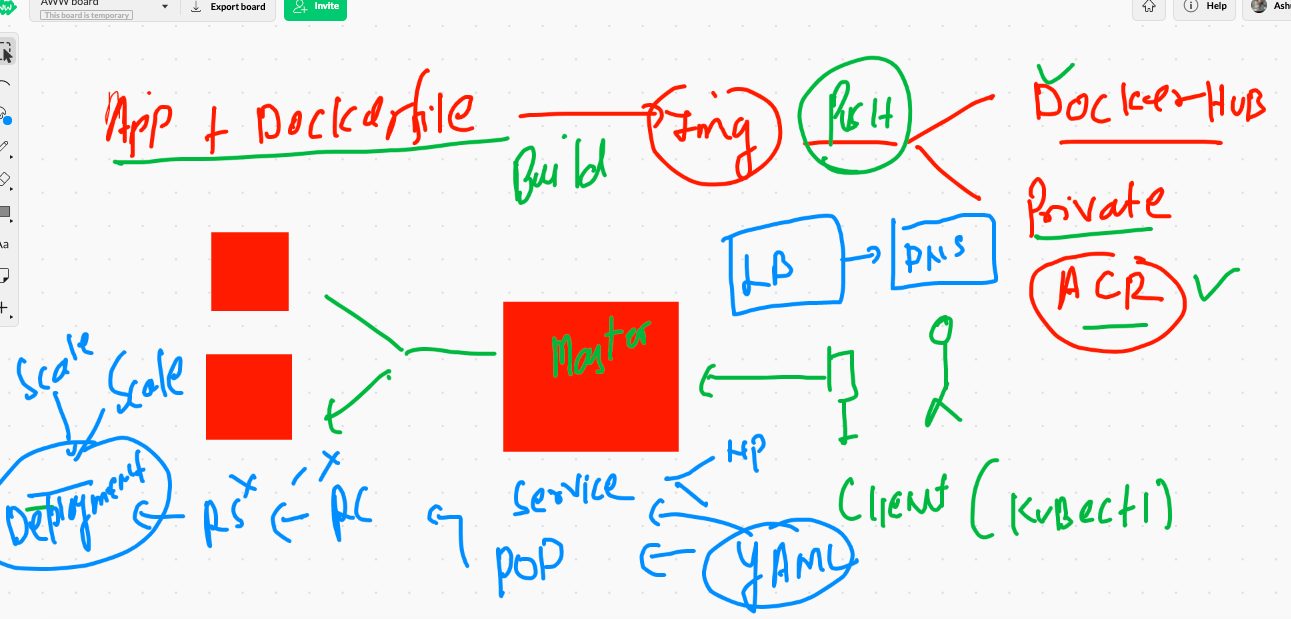 AWW board
This board is temporary
Export board
Invite
Help
App + Dockerfile
Build
Img
PusH
Docker-HUB
Private
ACR
LB
DNS
Master
Scale
Scale
Deployment
RS
RC
Service
NP
POD
YAML
Client (KuBectl)
Aa